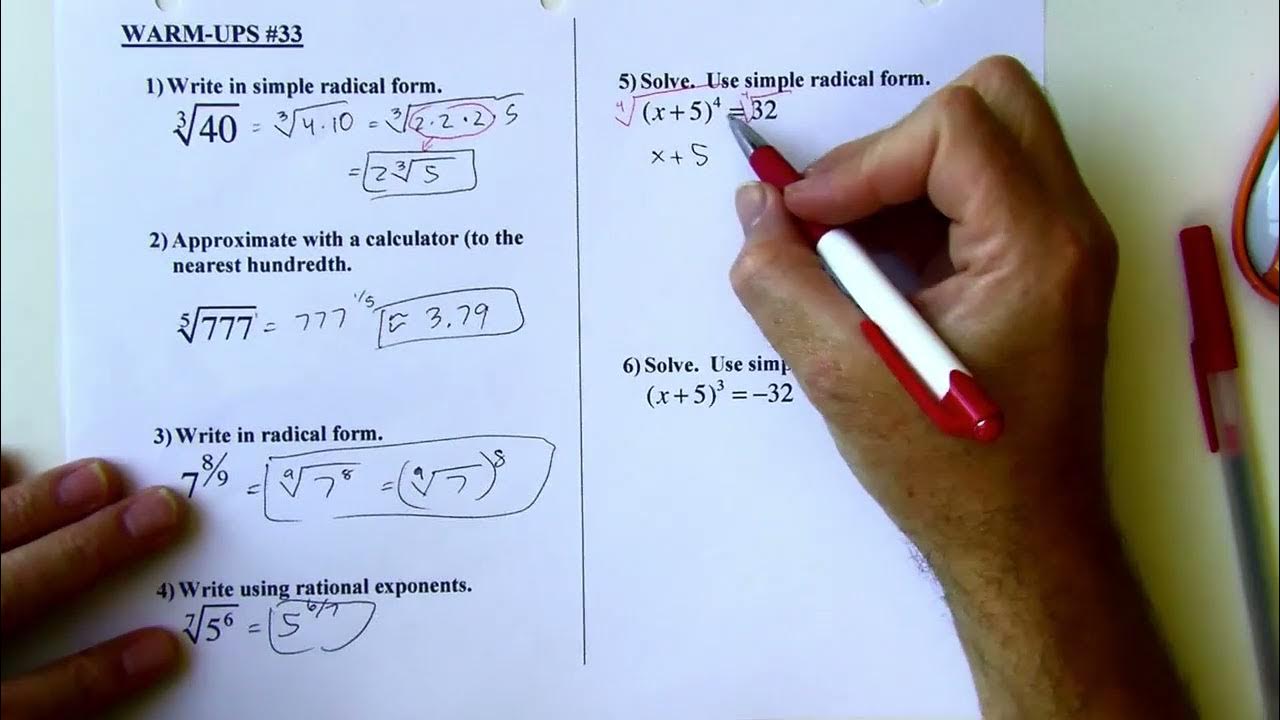 WARM-UPS #33
1) Write in simple radical form.
∛40 = ∛4·10 = ∛2·2·2·5
= 2∛5
2) Approximate with a calculator (to the
nearest hundredth.
⁵√777 = 777^1/5 ≈ 3.79
3) Write in radical form.
7^8/9 = ⁹√7⁸ = (⁹√7)⁸
4) Write using rational exponents.
⁷√5⁶ = 5^6/7
5) Solve. Use simple radical form.
⁴√(x+5)⁴ = ⁴√32
x + 5
6) Solve. Use simp
(x+5)³ = –32